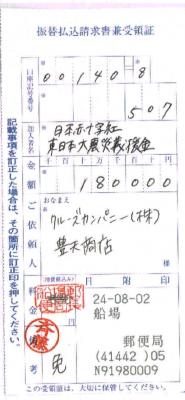 振替払込請求書兼受領証
口座記号番号
00140 8
507
加入者名
日本赤十字社
東日本大震災義援金
金額
千 百 十 万 千 百 十 円
180000
ご依頼人
おなまえ
クルーズカンパニー(株)
豊天商店
料金
(消費税込み)
日附印
24-08-02
船場
郵便局
(41442 )05
N91980009
備考
免
記載事項を訂正した場合は、その箇所に訂正印を押してください。
この受領証は、大切に保管してください。